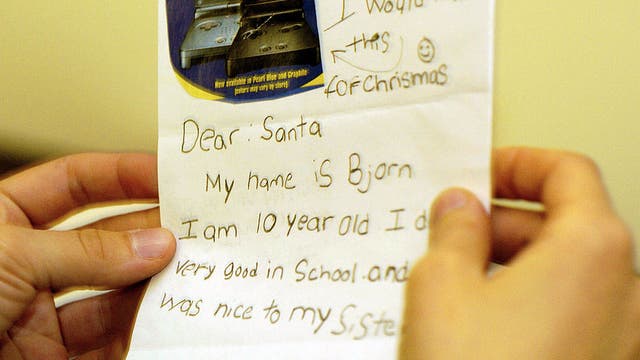 I would
this
for Chrismas
Now available in Pearl Blue and Graphite
(colors may vary by store)
Dear: Santa
My name is Bjorn
I am 10 year old I d
very good in School and
was nice to my Siste